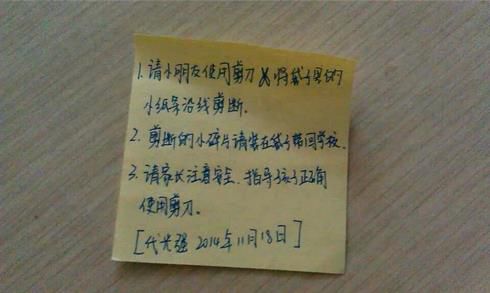 1. 请小朋友使用剪刀将袋子里的
小纸条沿线剪断.
2. 剪断的小碎片请装在袋子带回学校.
3. 请家长注意安全. 指导孩子正确
使用剪刀。
[代光强 2014年11月18日]